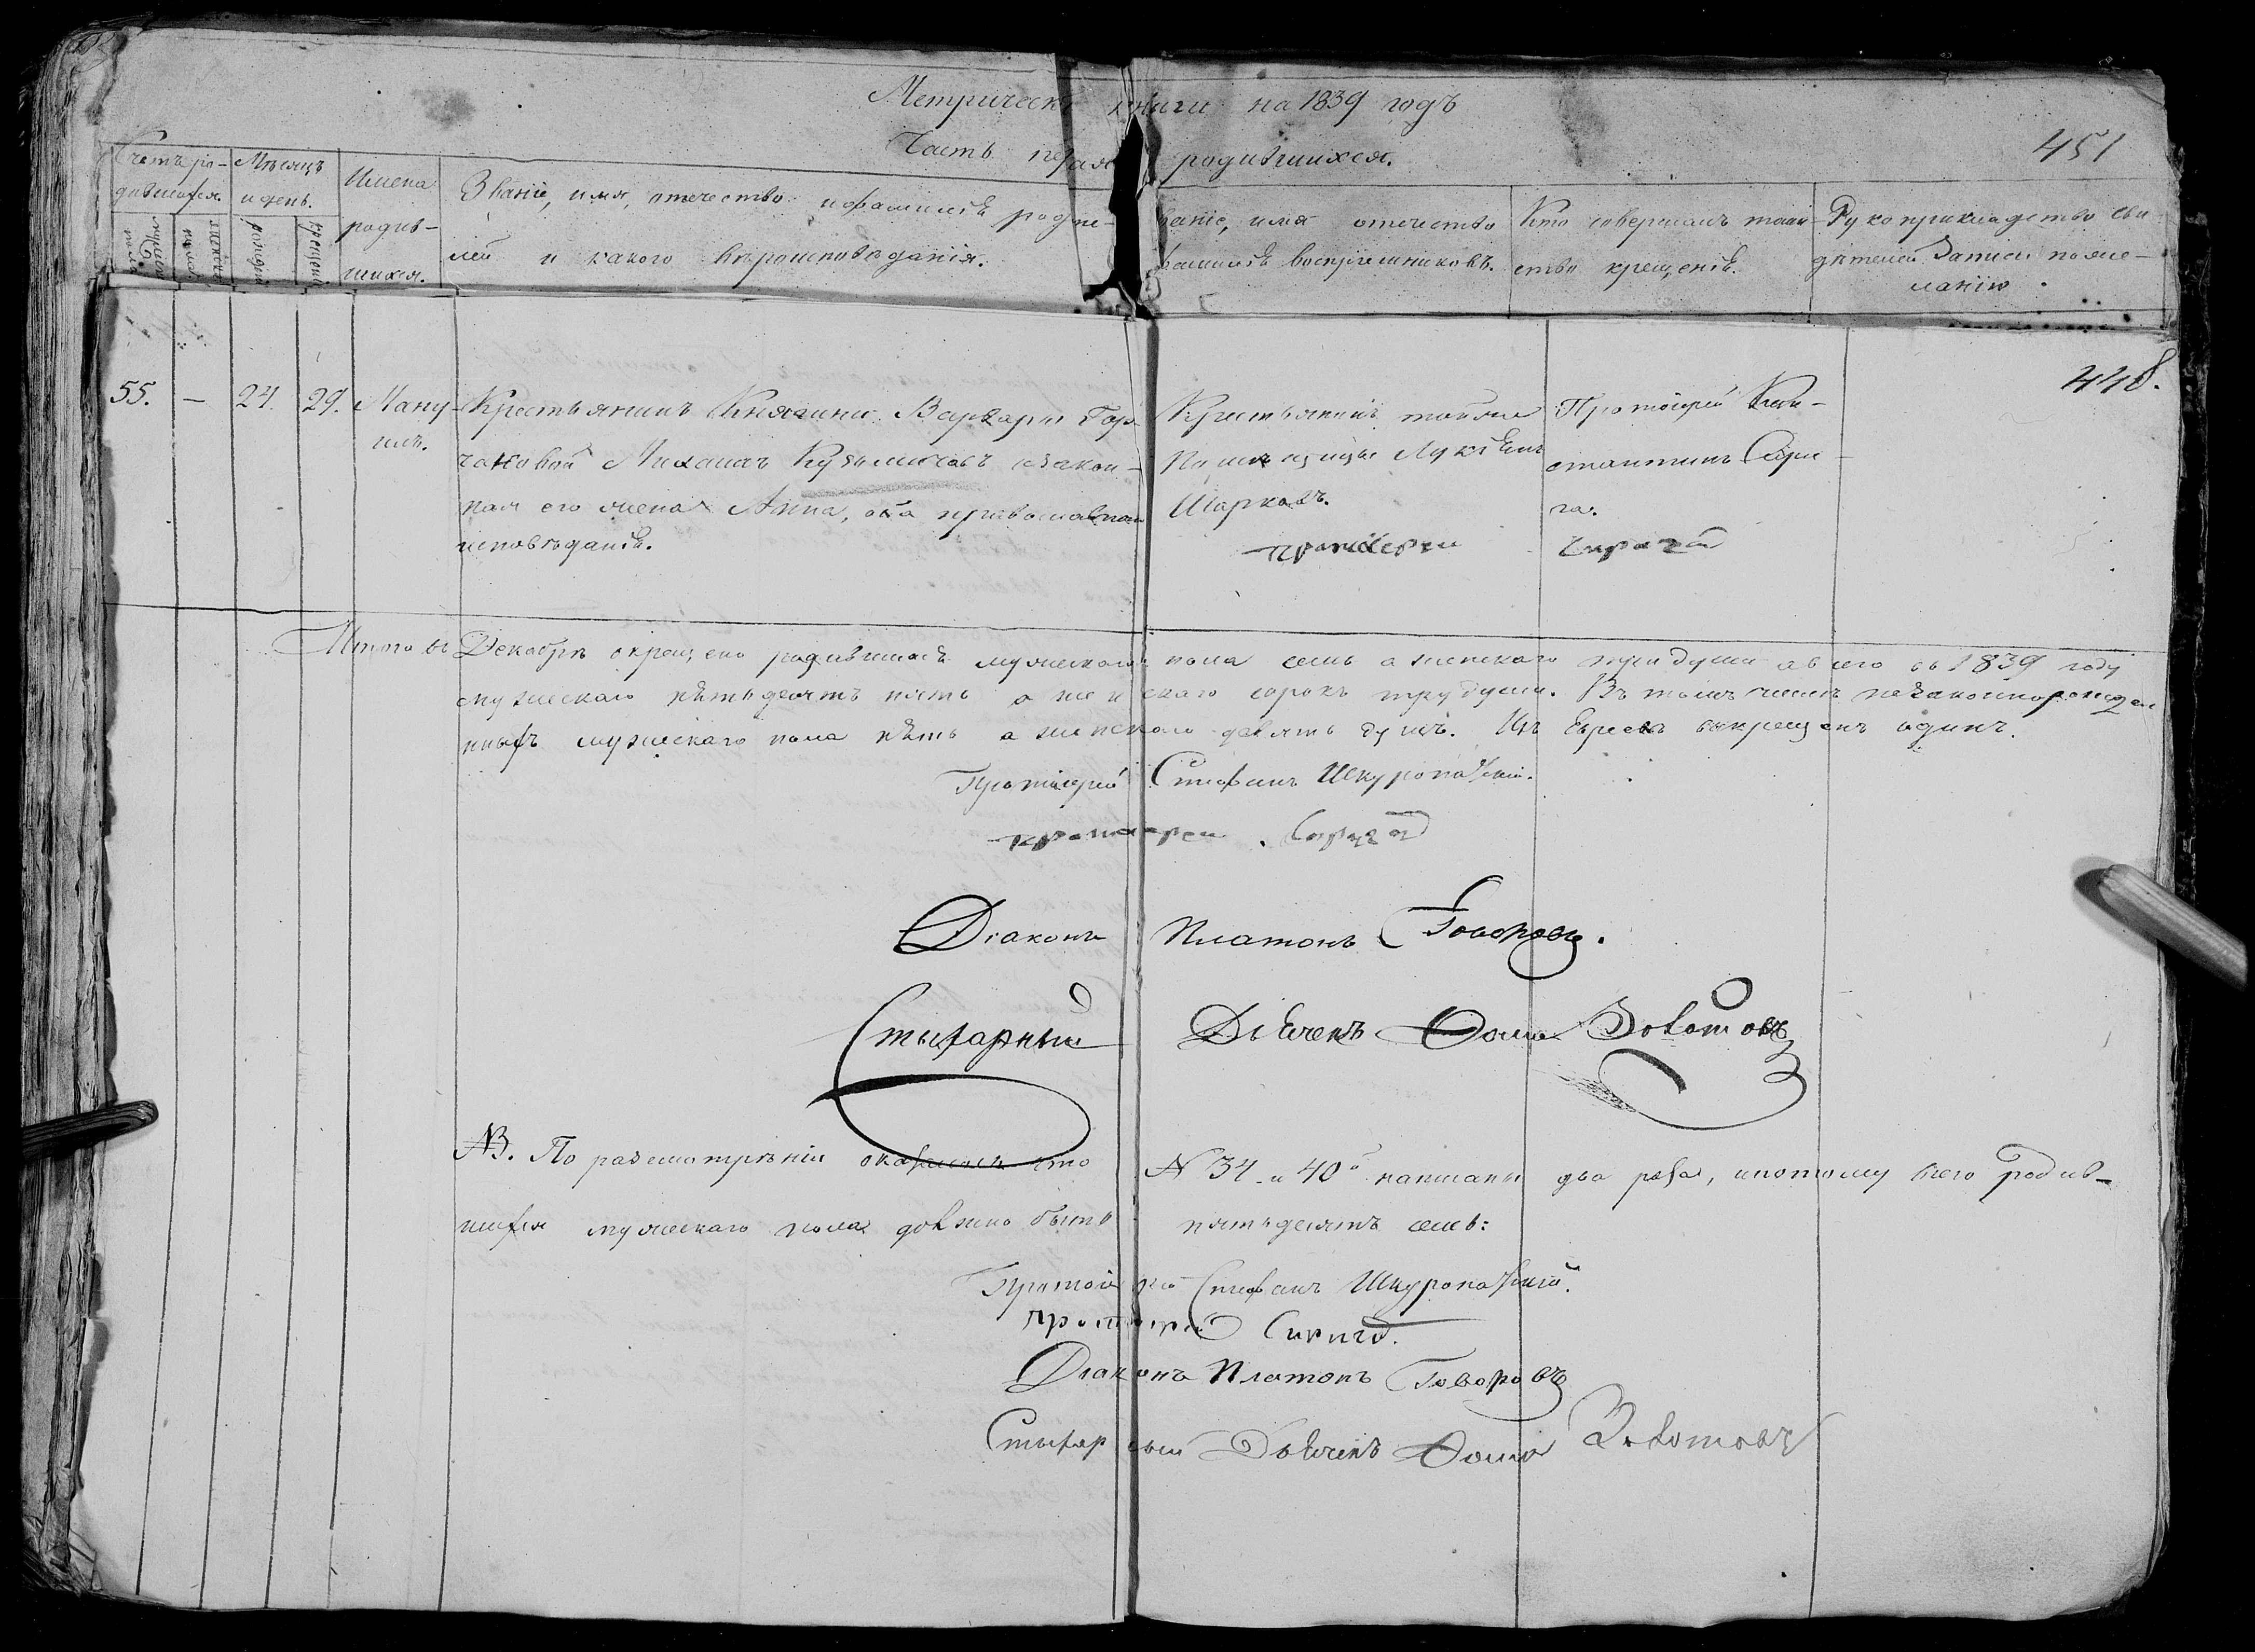 Метрическ книги на 1839 годъ
Часть первая родившихся.
451
Счетъ ро-
дившихся.
мужеска
пола
женска
пола
Мѣсяцъ
и день.
рожденія
крещенія
Имена
родив-
шихся.
Званіе, имя, отечество и фамилія родите-
лей и какого вѣроисповѣданія.
Званіе, имя отечество
фамилія воспріемниковъ.
Кто совершалъ таин
ство крещенія.
Рукоприкладство сви
дѣтелей Записи по же-
ланію
448.
55. — 24. 29. Ману-
илъ.
Крестьянинъ Княгини Варвары Гор-
чаковой Михаилъ Кузьмичовъ и закон-
ная его жена Анна, оба православнаго
исповѣданія.
Крестьянинъ тойже
Помѣщицы Лукіянъ
Шарковъ.
Протоіерей Кон-
стантинъ Сери-
га.
протоіереи
Итого въ Декабрѣ окрещено родившихся мужескаго пола семь а женскаго три души а всего въ 1839 году
мужескаго пятьдесятъ пять а женскаго сорокъ три души. Въ томъ числѣ незаконнорожден
ныхъ мужескаго пола пять а женскаго девять душъ. Изъ Евреевъ окрещенъ одинъ.
Протоіерей Стефанъ Шкуропатскій.
протоіереи
Діаконъ Платонъ Говоровъ.
Стихарный Дьячекъ Фома Золотовъ
NB. По разсмотрѣніи оказалось что N 34 и 40й написаны два раза, и потому всего родив-
шихся мужескаго пола должно быть пятьдесятъ семь:
Протоіерей Стефанъ Шкуропатскій.
протоіерей
Діаконъ Платонъ Говоровъ
Стихарный Дьячекъ Фома Золотовъ